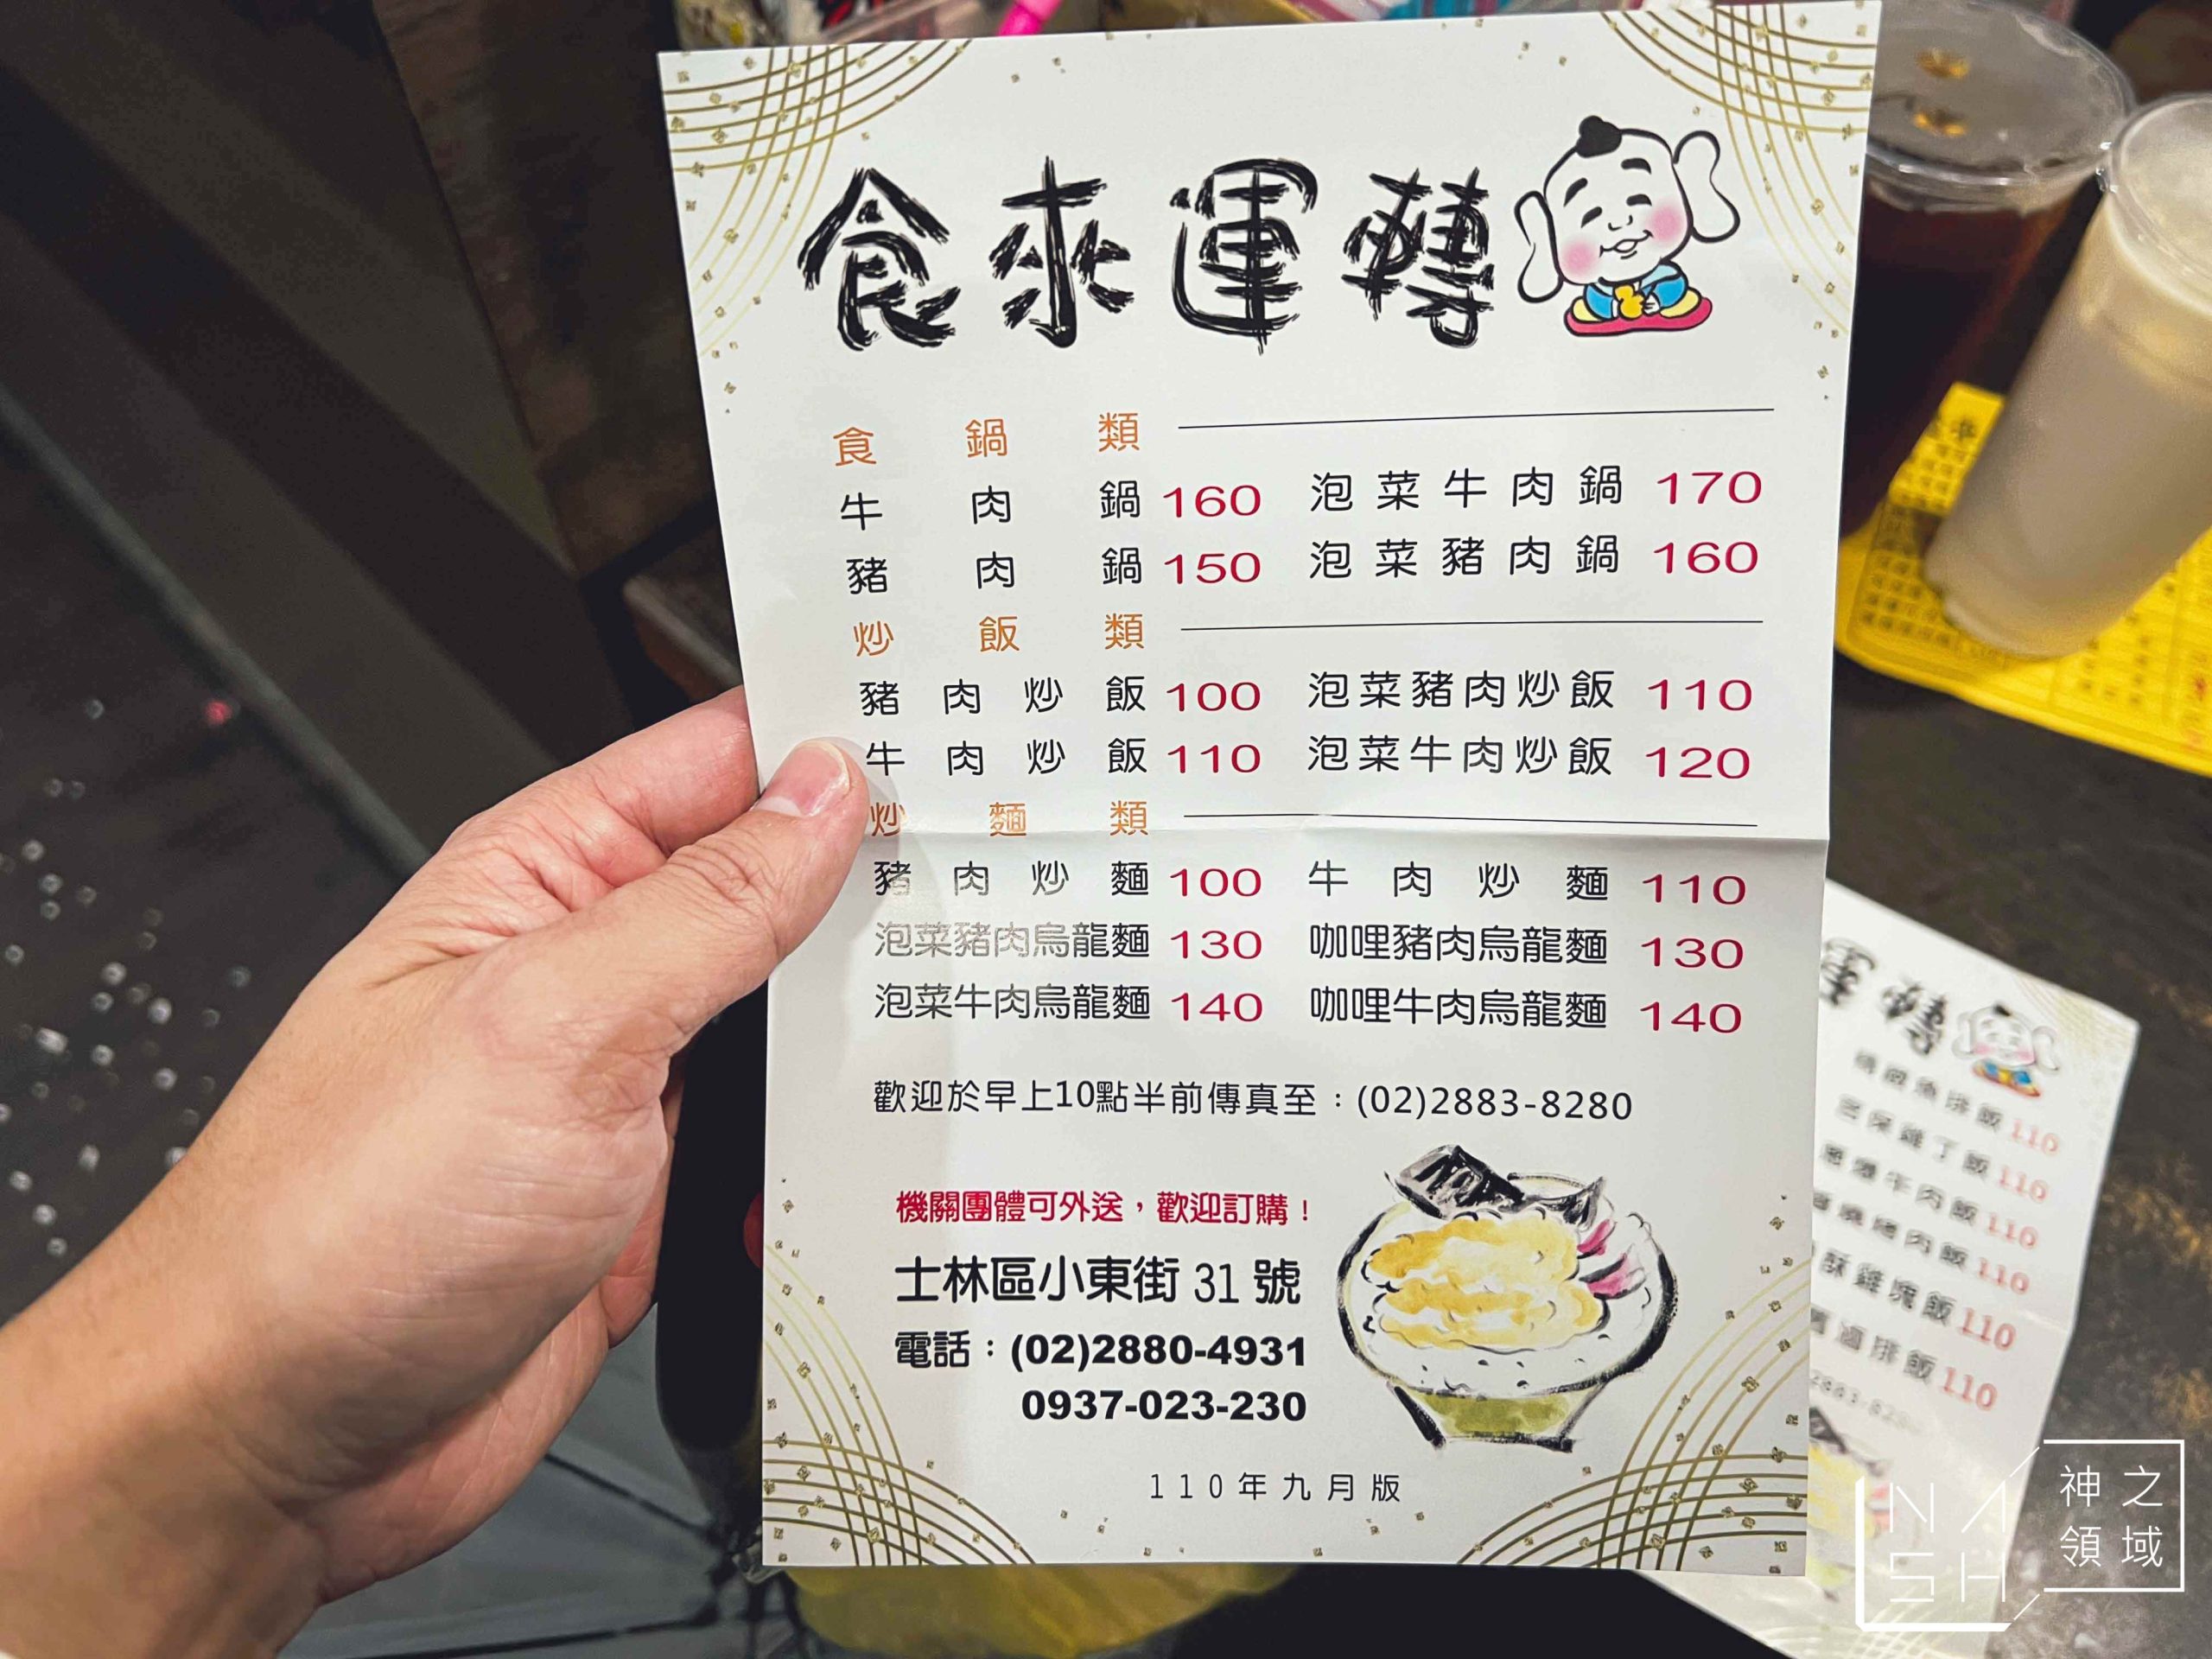 食來運轉
食鍋類
牛肉鍋 160 泡菜牛肉鍋 170
豬肉鍋 150 泡菜豬肉鍋 160
炒飯類
豬肉炒飯 100 泡菜豬肉炒飯 110
牛肉炒飯 110 泡菜牛肉炒飯 120
炒麵類
豬肉炒麵 100 牛肉炒麵 110
泡菜豬肉烏龍麵 130 咖哩豬肉烏龍麵 130
泡菜牛肉烏龍麵 140 咖哩牛肉烏龍麵 140
歡迎於早上10點半前傳真至：(02)2883-8280
機關團體可外送，歡迎訂購！
士林區小東街 31 號
電話：(02)2880-4931
0937-023-230
110年九月版
運轉
魚排飯 110
宮保雞丁飯 110
爆牛肉飯 110
燒烤肉飯 110
酥雞塊飯 110
滷排飯 110
NASH
神之領域